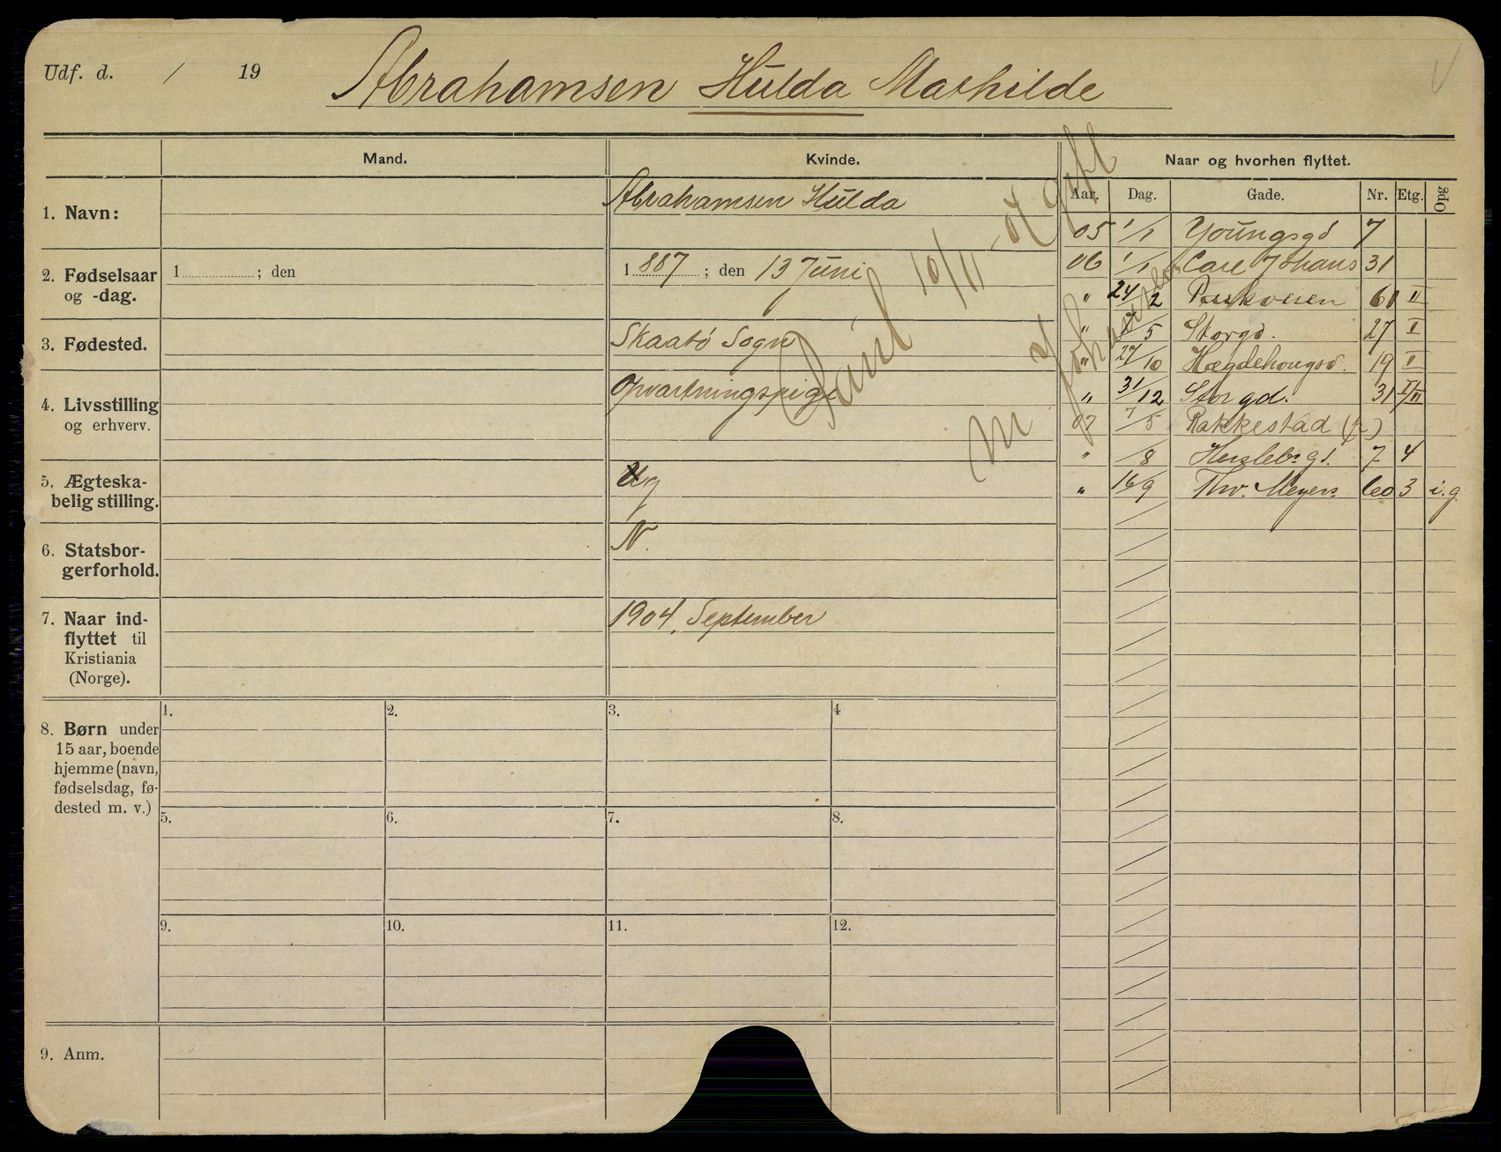 Udf. d. / 19
Abrahamsen Hulda Mathilde
Mand. Kvinde. Naar og hvorhen flyttet.
Aar. Dag. Gade. Nr. Etg. Opg
1. Navn:
Abrahamsen Hulda
2. Fødselsaar
og -dag.
1 ; den
1887 ; den 13 Juni
3. Fødested.
Skaatø Sogn
4. Livsstilling
og erhverv.
Opvartningspige
5. Ægteska-
belig stilling.
Ug
6. Statsbor-
gerforhold.
N.
7. Naar ind-
flyttet til
Kristiania
(Norge).
1904, September
10/11
05 1/1 Youngsgd 7
06 1/1 Carl Johans 31
" 24/2 61 II
" /5 Storgd. 27 I
" 27/10 Hægdehougsv. 19 I
" 31/12 Storgd. 31 I/II
07 7/5 Rakkestad (p)
" /8 Herslebsgd. 7 4
" 16/9 Thv. Meyers 60 3 i.g.
8. Børn under
15 aar, boende
hjemme (navn,
fødselsdag, fø-
dested m. v.)
1. 2. 3. 4
5. 6. 7. 8.
9. 10. 11. 12.
9. Anm.